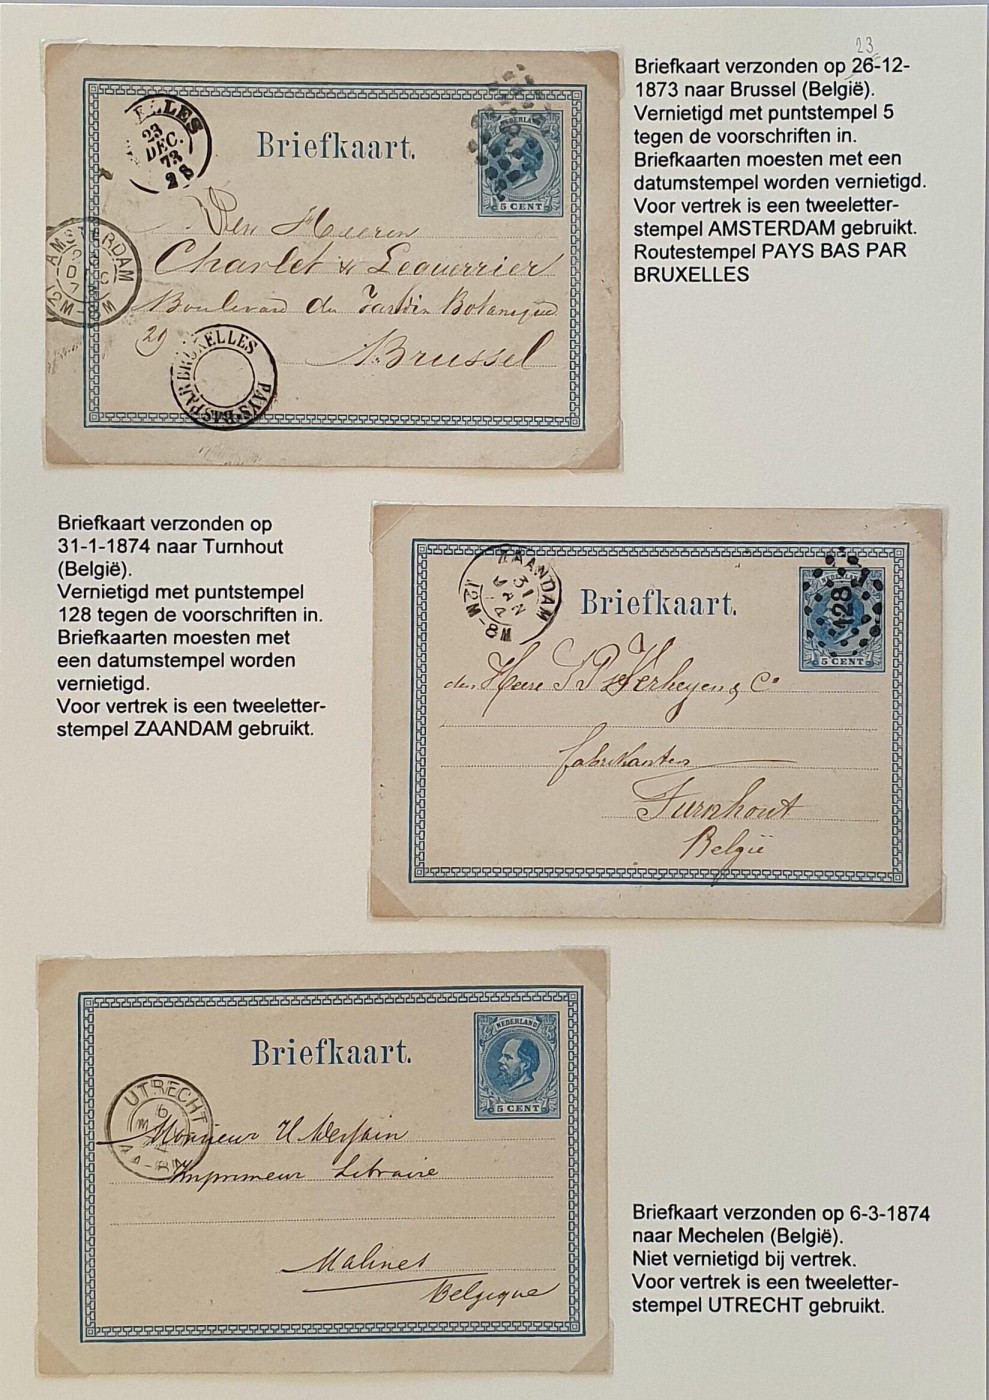 23
Briefkaart verzonden op 26-12-
1873 naar Brussel (België).
Vernietigd met puntstempel 5
tegen de voorschriften in.
Briefkaarten moesten met een
datumstempel worden vernietigd.
Voor vertrek is een tweeletter-
stempel AMSTERDAM gebruikt.
Routestempel PAYS BAS PAR
BRUXELLES
ELLES
23
DEC.
73
Briefkaart.
NEDERLAND
5 CENT
Den Heeren
Charlet & Lequerrier
Boulevard du Jardin Botanique
29
Brussel
AMSTERDAM
8M-12M
PAYS-BAS PAR BRUXELLES
Briefkaart verzonden op
31-1-1874 naar Turnhout
(België).
Vernietigd met puntstempel
128 tegen de voorschriften in.
Briefkaarten moesten met
een datumstempel worden
vernietigd.
Voor vertrek is een tweeletter-
stempel ZAANDAM gebruikt.
ZAANDAM
31
JAN
74
8M-12M
Briefkaart.
NEDERLAND
128
5 CENT
den Heere J P Verheyen & Co
fabrikanten
Turnhout
België
Briefkaart.
NEDERLAND
5 CENT
UTRECHT
6
Monsieur H
Imprimeur Libraire
Malines
Belgique
Briefkaart verzonden op 6-3-1874
naar Mechelen (België).
Niet vernietigd bij vertrek.
Voor vertrek is een tweeletter-
stempel UTRECHT gebruikt.